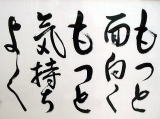 もっと
面向く
もっと
気持ち
よく